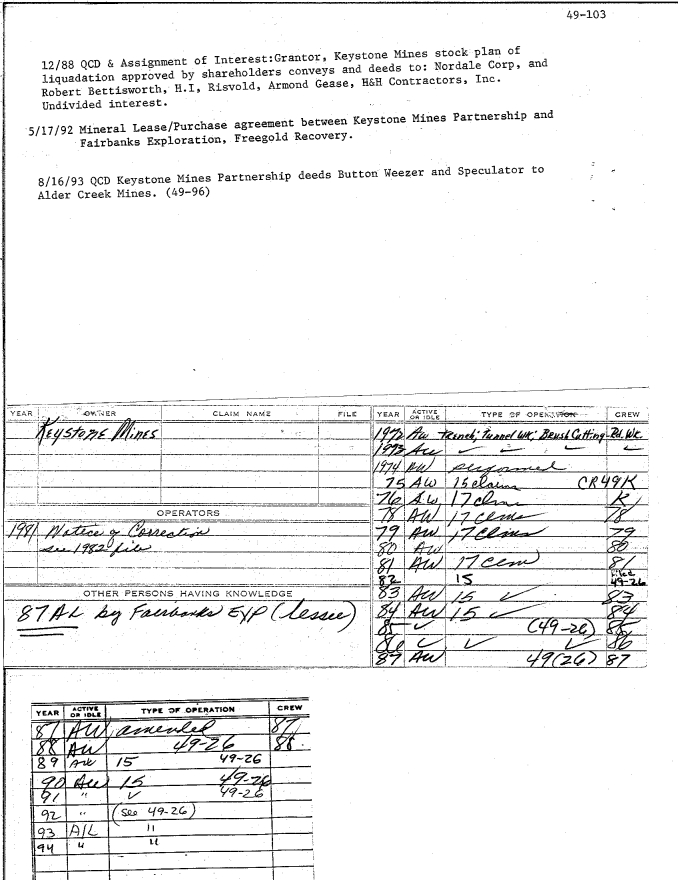 49-103
12/88 QCD & Assignment of Interest:Grantor, Keystone Mines stock plan of
liquadation approved by shareholders conveys and deeds to: Nordale Corp, and
Robert Bettisworth, H.I, Risvold, Armond Gease, H&H Contractors, Inc.
Undivided interest.
5/17/92 Mineral Lease/Purchase agreement between Keystone Mines Partnership and
Fairbanks Exploration, Freegold Recovery.
8/16/93 QCD Keystone Mines Partnership deeds Button Weezer and Speculator to
Alder Creek Mines. (49-96)
YEAR OWNER CLAIM NAME FILE
Keystone Mines
OPERATORS
1981 Notice of Correction
see 1982 file
OTHER PERSONS HAVING KNOWLEDGE
87 AL by Fairbanks EXP (lessee)
YEAR ACTIVE OR IDLE TYPE OF OPERATION CREW
1972 AW trench; tunnel WK; Brush Cutting Rd. Wk.
1973 AW ✓ ✓ ✓
1974 AW performed
75 AW 15 claims CR49K
76 AW 17 clms K
78 AW 17 clms 78
79 AW 17 clms 79
80 AW 80
81 AW 17 clm 81
82 15 filed 49-26
83 AW 15 ✓ 83
84 AW 15 ✓ 84
85 ✓ (49-26) 85
86 ✓ ✓ ✓ 86
87 AW 49(26) 87
YEAR ACTIVE OR IDLE TYPE OF OPERATION CREW
87 AW amended 87
88 AW 49-26 88
89 AW 15 49-26
90 AW 15 49-26
91 " ✓ 49-26
92 " (see 49-26)
93 A/L "
94 " "